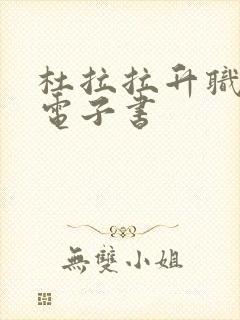 杜拉拉升職
電子書
無雙小姐